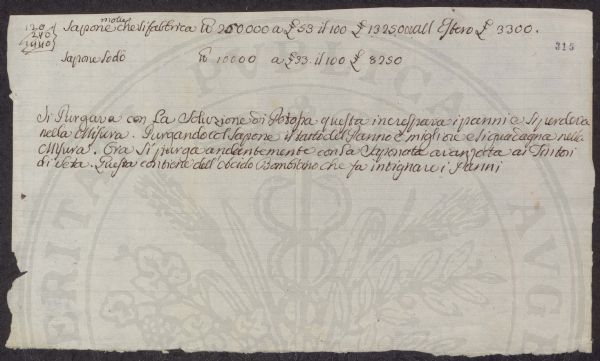 molle
120
240
1440
Sapone che si fabbrica ℔ 250000 a £ 53 il 100 £ 132500 all Estero £ 3300.
315
Sapone Sodo ℔ 10000 a £ 33. il 100 £ 8250
Si Purgava con La Soluzione di Potassa questa increspava i panni e si perdeva
nella Misura. Purgando col Sapone il tatto del Panno è migliore e si guadagna nella
Misura. Ora si purga andantemente con la Saponata avanzata ai Tintori
di Seta. Questa contiene dell'Acido Bombicino che fa intignare i Panni
VERITAS
PUBLICA
AUGE